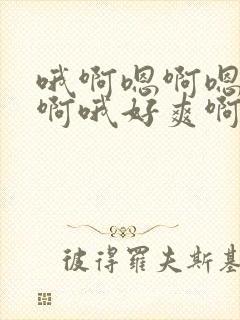 哦啊嗯啊嗯
啊哦好爽啊
彼得羅夫斯基